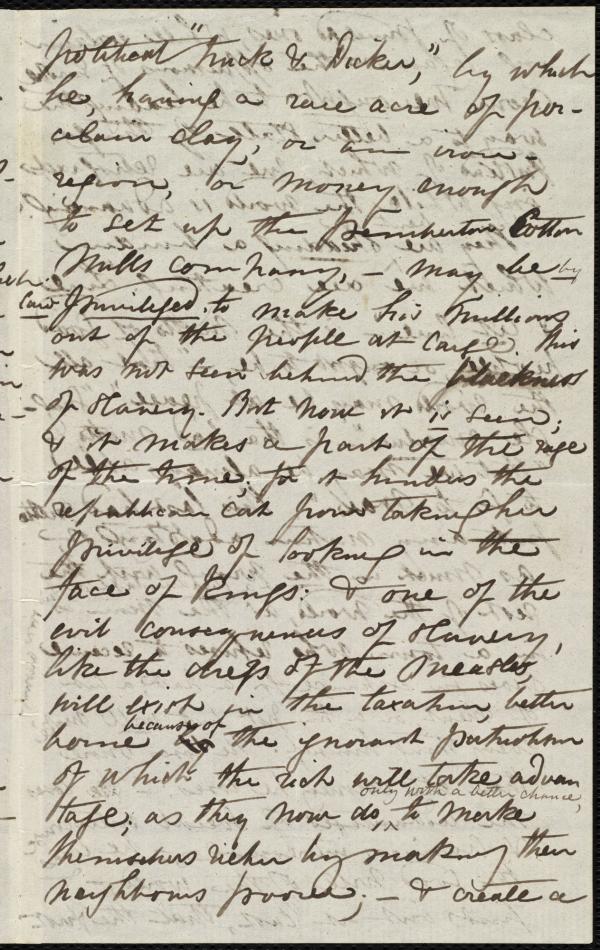 political "truck & Dicker," by which
he, having a rare acre of por-
celain clay, or an iron-
region, or money enough
to set up the Pemberton Cotton
Mills company, - may be by
law Privileged, to make his millions
out of the people at large. This
was not seen behind the blackness
of slavery. But now it is seen;
& it makes a part of the rage
of the time; for it hinders the
republican cat from taking her
privilege of looking in the
face of Kings: & one of the
evil consequences of slavery,
like the dregs of the measles,
will exist in the taxation, better
borne because of the ignorant patriotism
of which the rich will take advan
tage; as they now do, only with a better chance, to make
themselves richer by making their
neighbours poorer; - & create a